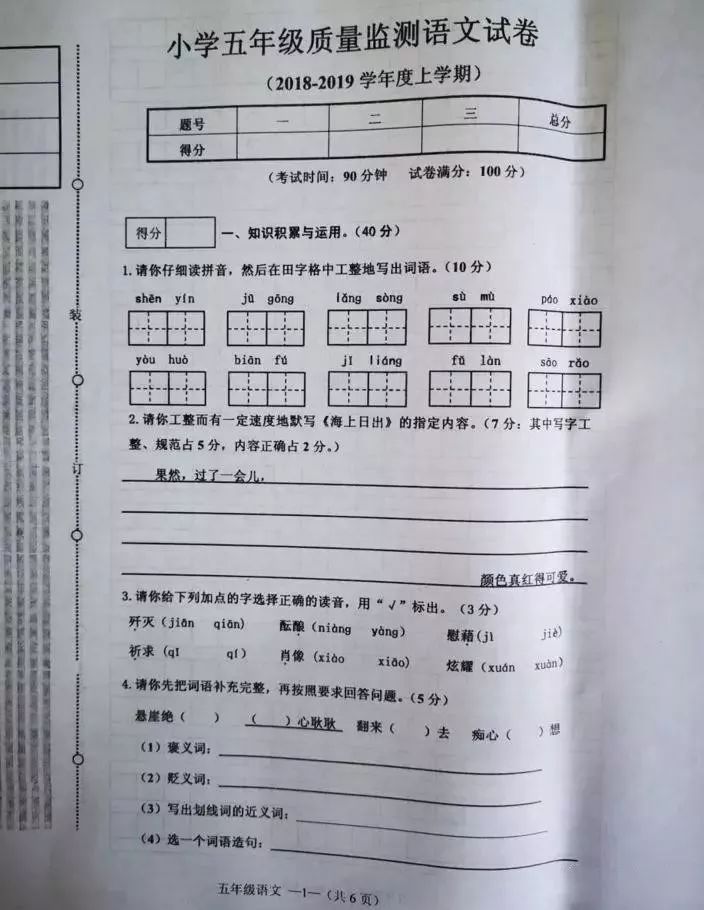 小学五年级质量监测语文试卷
（2018-2019 学年度上学期）
题号 一 二 三 总分
得分
（考试时间：90 分钟 试卷满分：100 分）
得分 一、知识积累与运用。（40 分）
1.请你仔细读拼音，然后在田字格中工整地写出词语。（10 分）
shēn yín jū gōng liǎng sòng sù mù páo xiào
yòu huò biān fú jǐ liáng fū làn sāo rǎo
2.请你工整而有一定速度地默写《海上日出》的指定内容。（7 分：其中写字工
整、规范占 5 分，内容正确占 2 分。）
果然，过了一会儿，
颜色真红得可爱。
3.请你给下列加点的字选择正确的读音，用“√”标出。（3 分）
歼灭（jiān qiān） 酝酿（niàng yàng） 慰藉（jì jiè）
祈求（qǐ qí） 肖像（xiào xiāo） 炫耀（xuán xuàn）
4.请你先把词语补充完整，再按照要求回答问题。（5 分）
悬崖绝（ ） （ ）心耿耿 翻来（ ）去 痴心（ ）想
（1）褒义词：
（2）贬义词：
（3）写出划线词的近义词：
（4）选一个词语造句：
五年级语文 —1—（共 6 页）
装
订